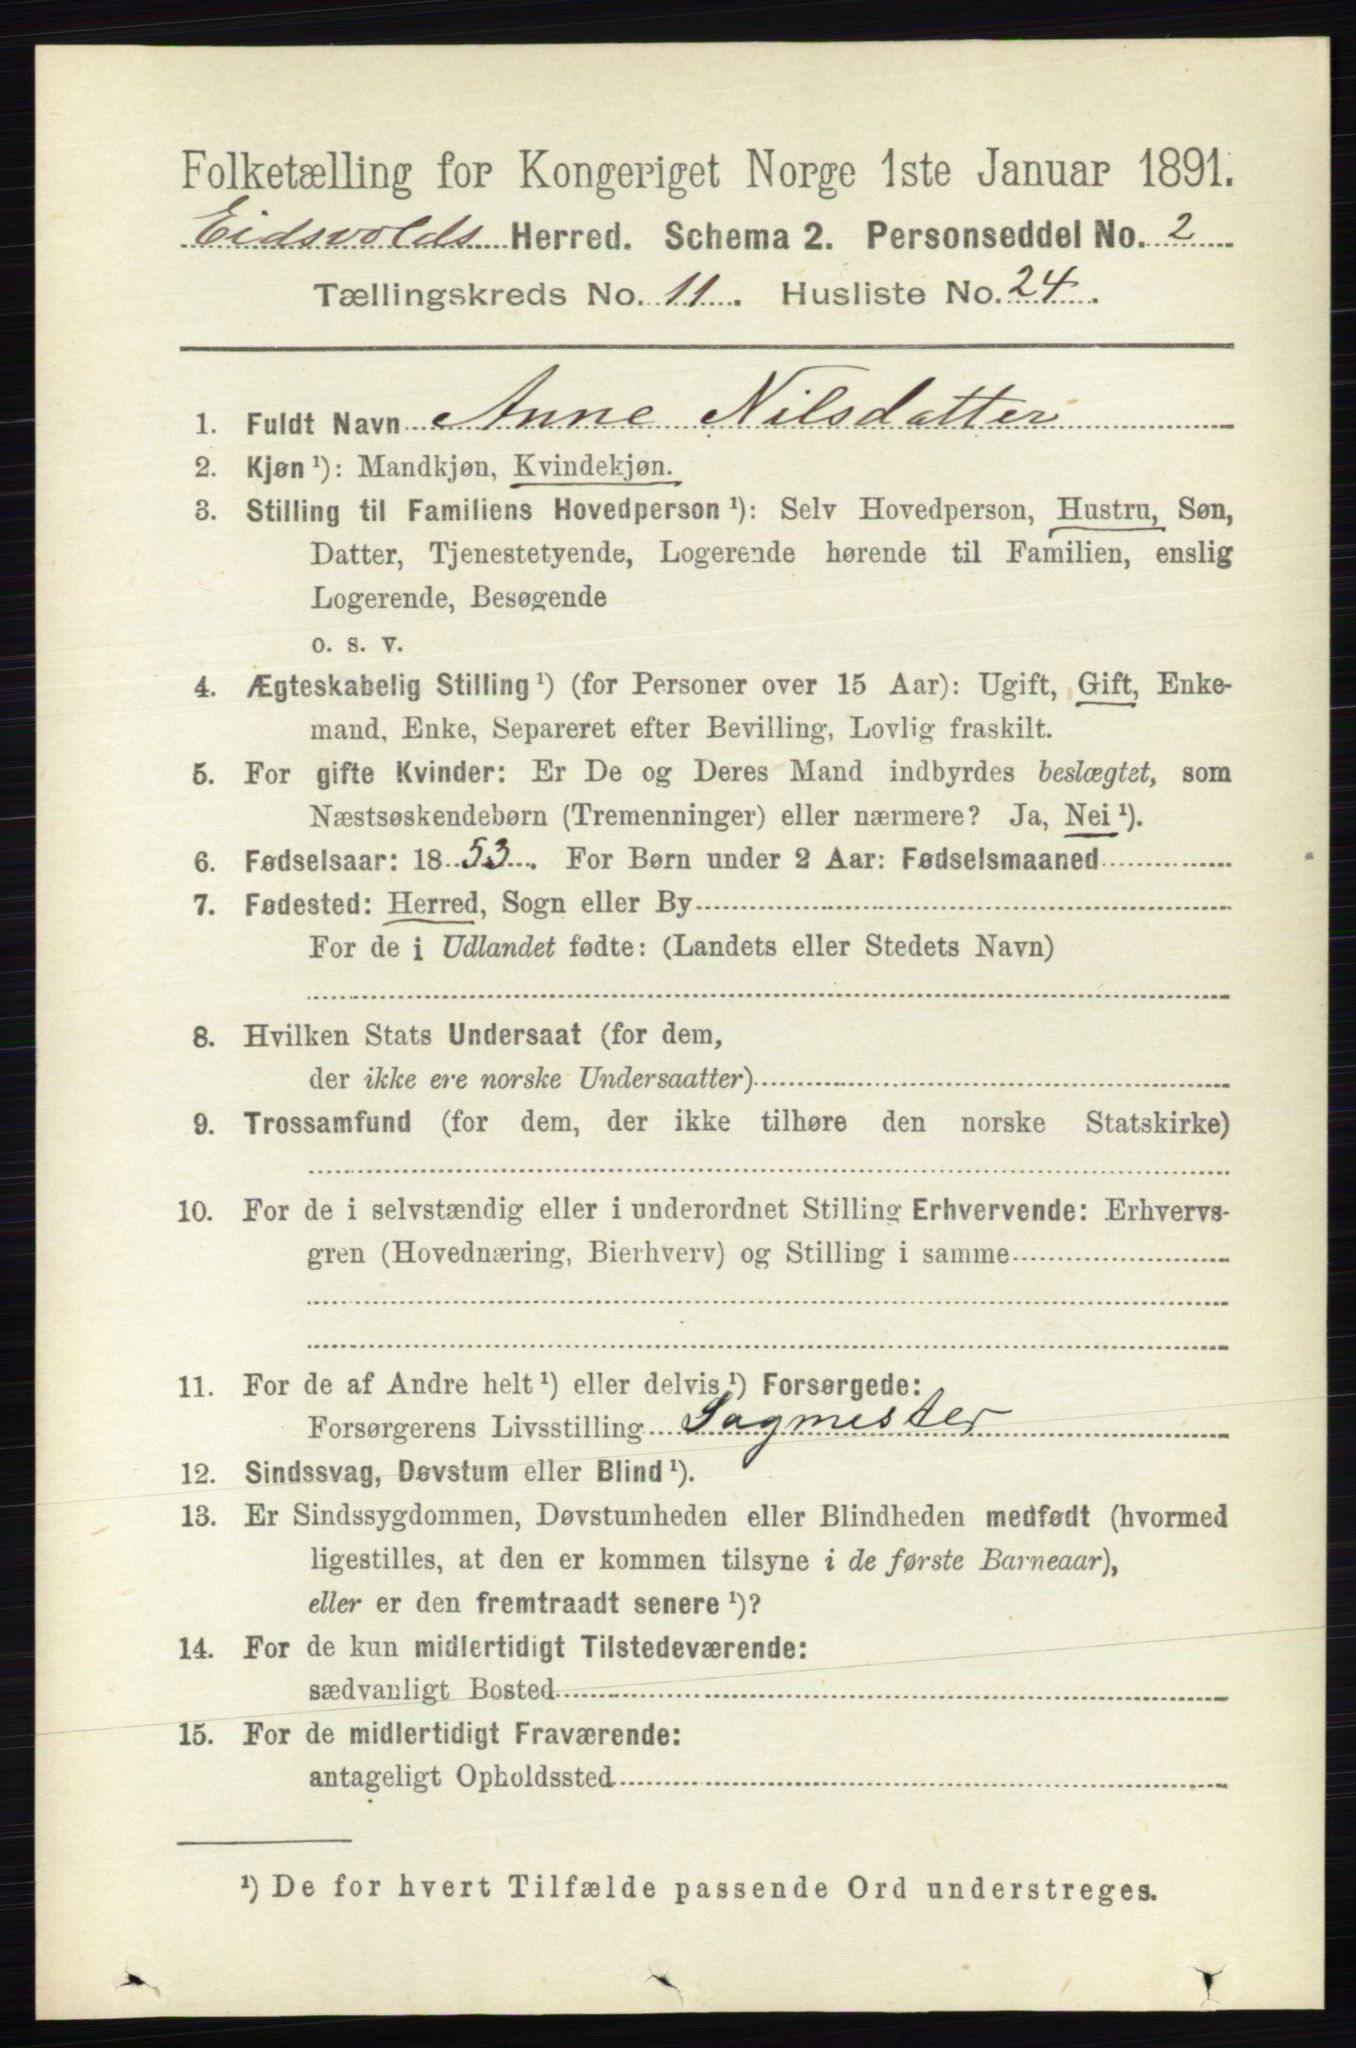 Folketælling for Kongeriget Norge 1ste Januar 1891.
Eidsvolds Herred. Schema 2. Personseddel No. 2
Tællingskreds No. 11. Husliste No. 24.
1. Fuldt Navn Anne Nilsdatter
2. Kjøn ¹): Mandkjøn, Kvindekjøn.
3. Stilling til Familiens Hovedperson ¹): Selv Hovedperson, Hustru, Søn,
Datter, Tjenestetyende, Logerende hørende til Familien, enslig
Logerende, Besøgende
o. s. v.
4. Ægteskabelig Stilling ¹) (for Personer over 15 Aar): Ugift, Gift, Enke-
mand, Enke, Separeret efter Bevilling, Lovlig fraskilt.
5. For gifte Kvinder: Er De og Deres Mand indbyrdes beslægtet, som
Næstsøskendebørn (Tremenninger) eller nærmere? Ja, Nei ¹).
6. Fødselsaar: 1853. For Børn under 2 Aar: Fødselsmaaned
7. Fødested: Herred, Sogn eller By
For de i Udlandet fødte: (Landets eller Stedets Navn)
8. Hvilken Stats Undersaat (for dem,
der ikke ere norske Undersaatter)
9. Trossamfund (for dem, der ikke tilhøre den norske Statskirke)
10. For de i selvstændig eller i underordnet Stilling Erhvervende: Erhvervs-
gren (Hovednæring, Bierhverv) og Stilling i samme
11. For de af Andre helt ¹) eller delvis ¹) Forsørgede:
Forsørgerens Livsstilling Sagmester
12. Sindssvag, Døvstum eller Blind ¹).
13. Er Sindssygdommen, Døvstumheden eller Blindheden medfødt (hvormed
ligestilles, at den er kommen tilsyne i de første Barneaar),
eller er den fremtraadt senere ¹)?
14. For de kun midlertidigt Tilstedeværende:
sædvanligt Bosted
15. For de midlertidigt Fraværende:
antageligt Opholdssted
¹) De for hvert Tilfælde passende Ord understreges.